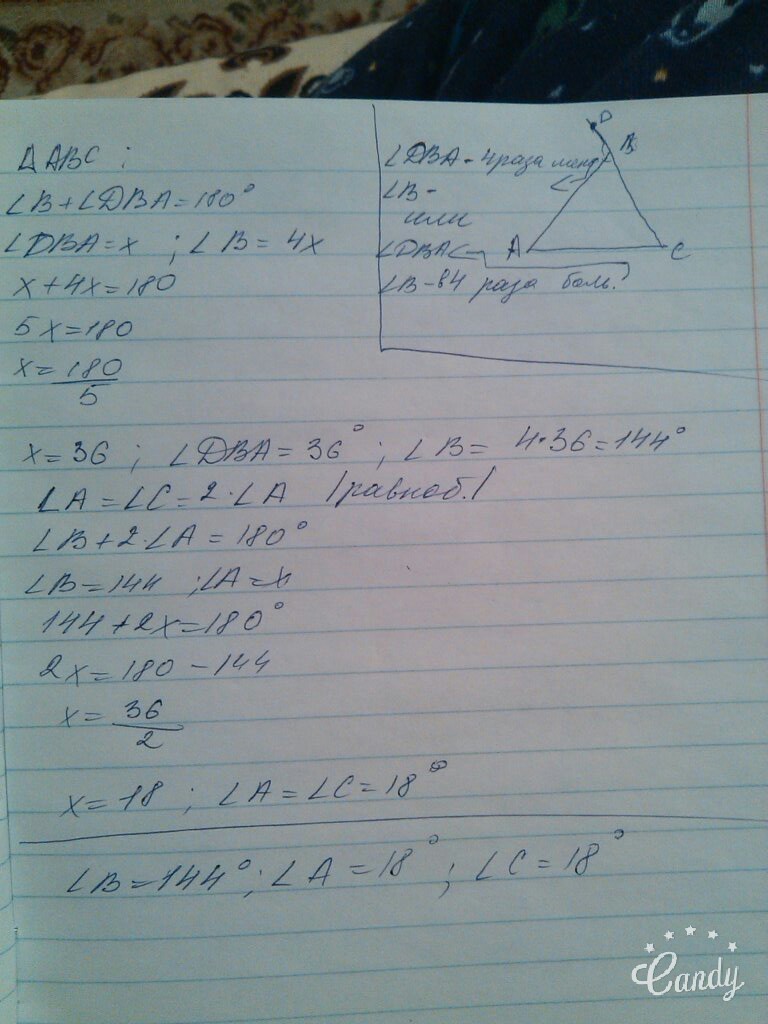 Δ ABC :
∠B+∠DBA=180°
∠DBA=x ; ∠B=4x
x+4x=180
5x=180
x=180/5
D
B
∠DBA-4раза
∠B-
или
∠DBA
A
C
∠B-в4 раза боль.
x=36 ; ∠DBA=36° ; ∠B= 4·36=144°
∠A=∠C=2·∠A /равноб./
∠B+2·∠A=180°
∠B=144 ;∠A=x
144+2x=180°
2x=180-144
x=36/2
x=18 ; ∠A=∠C=18°
∠B=144°; ∠A=18° ; ∠C=18°
Candy